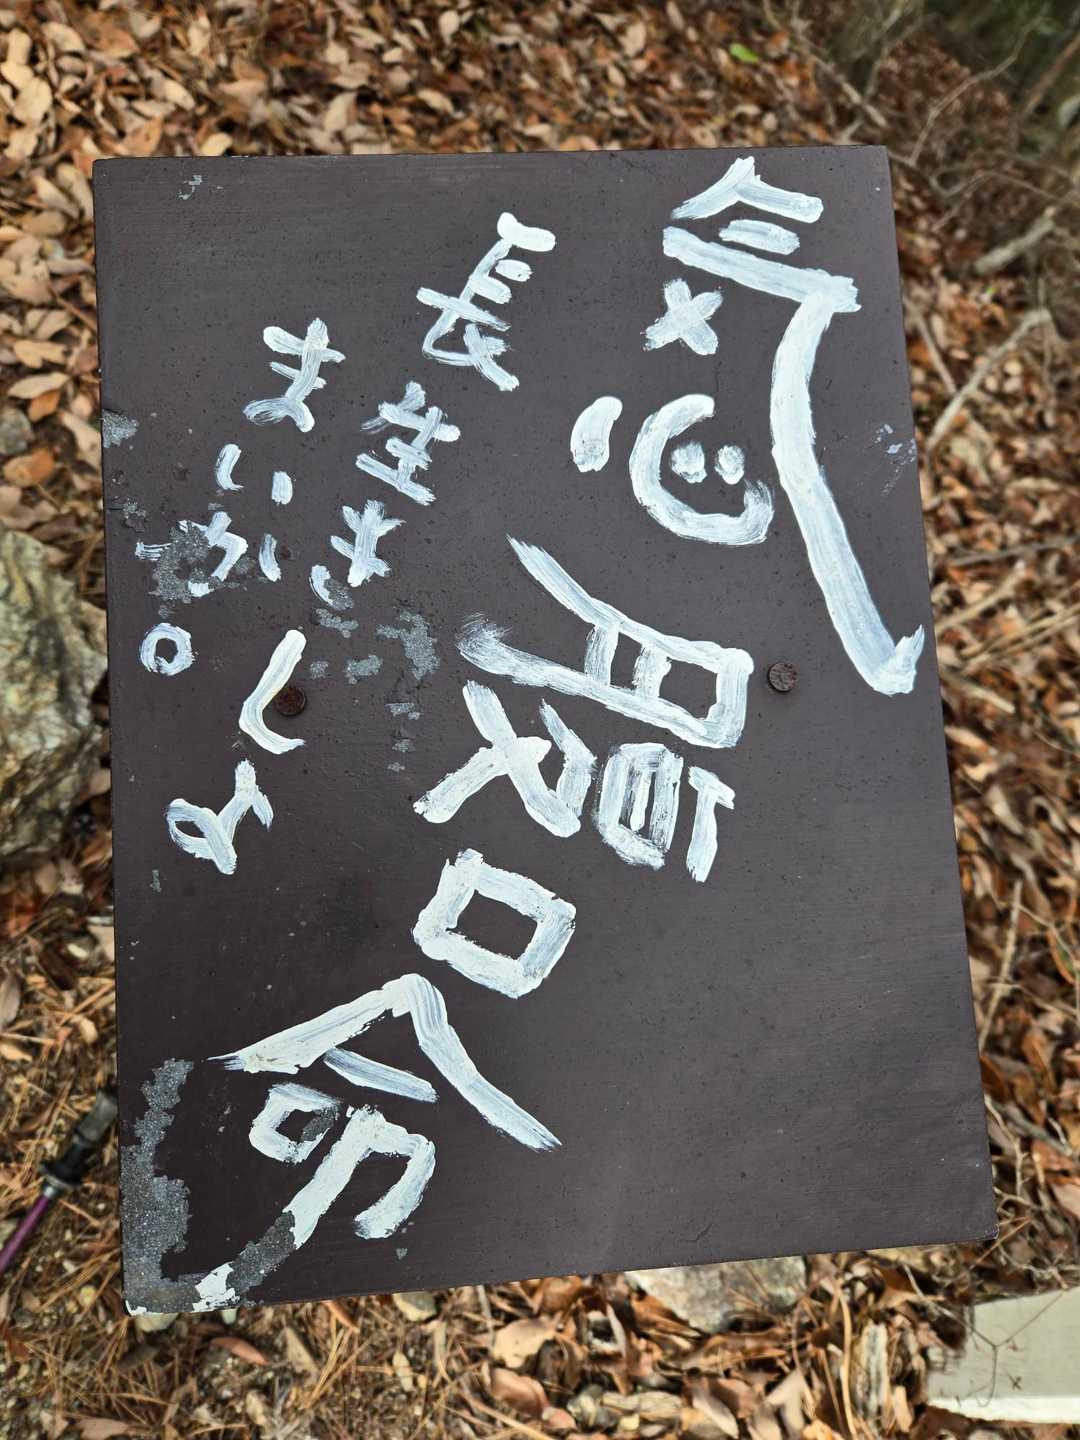 気心腹口命
長生きしよ
まいか。